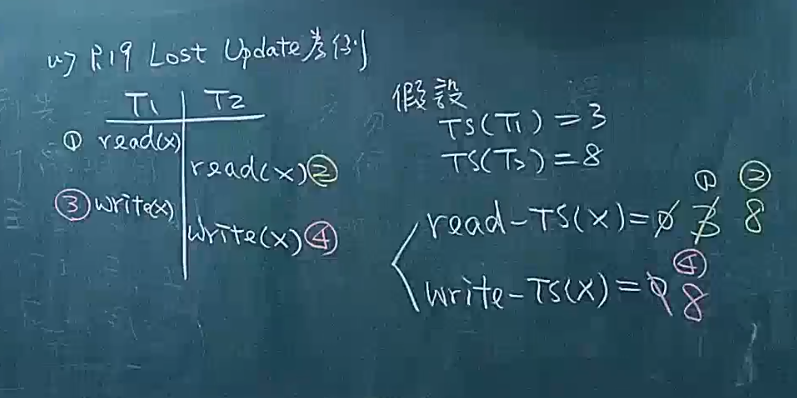 (1) P.19 Lost Update 為例
T1 T2
① read(x)
read(x) ②
③ write(x)
write(x) ④
假設
TS(T1) = 3
TS(T2) = 8
① ②
read-TS(X) = 0 3 8
④
write-TS(X) = 0 8